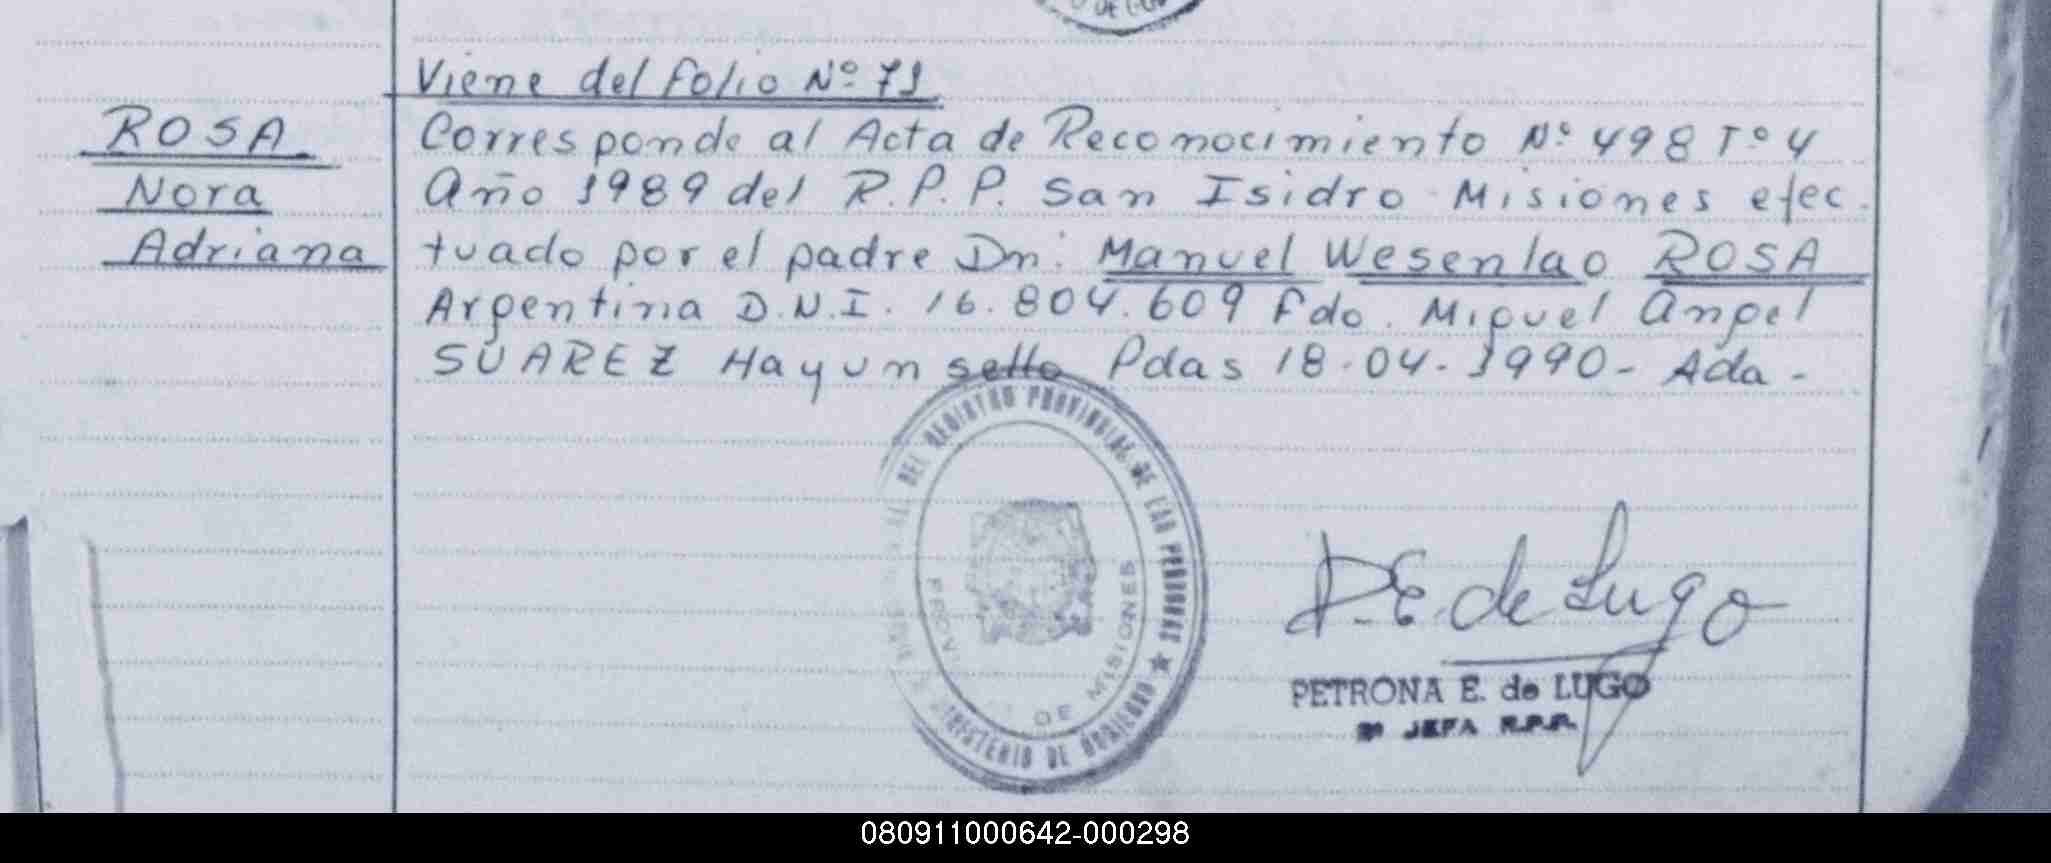 O DE GO
Viene del folio Nº 71
ROSA
Nora
Adriana
Corresponde al Acta de Reconocimiento Nº 498 Tº 4
Año 1989 del R.P.P. San Isidro Misiones efec.
tuado por el padre Dn. Manuel Wesenlao ROSA
Argentina D.N.I. 16.804.609 fdo. Miguel Angel
SUAREZ Hay un sello Pdas 18-04-1990- Ada-
DEL REGISTRO PROVINCIAL DE LAS PERSONAS ★
DE GOBIERNO
DE MISIONES
P.E. de Lugo
PETRONA E. de LUGO
2ª JEFA R.P.P.
080911000642-000298